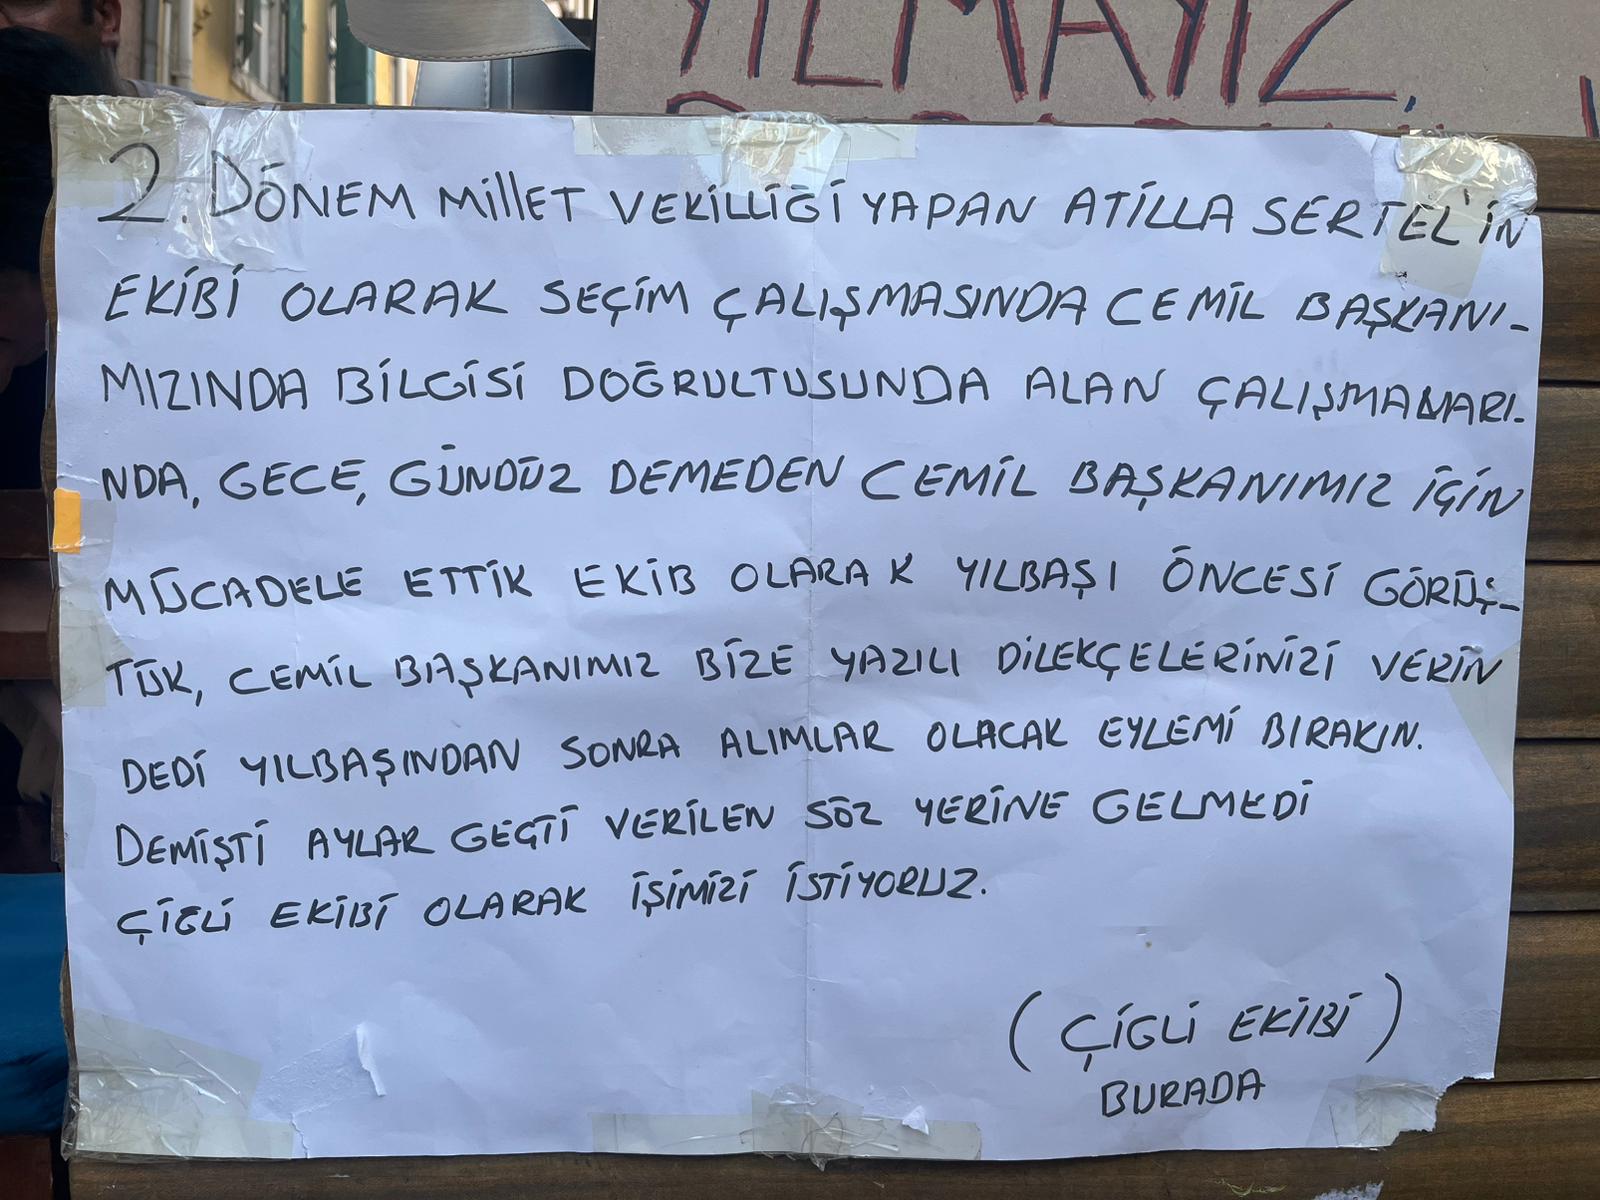 YILMAYIZ.
2. DÖNEM MİLLET VEKİLLİĞİ YAPAN ATİLLA SERTEL'İN
EKİBİ OLARAK SEÇİM ÇALIŞMASINDA CEMİL BAŞKANI-
MIZINDA BİLGİSİ DOĞRULTUSUNDA ALAN ÇALIŞMALARI-
NDA, GECE, GÜNDÜZ DEMEDEN CEMİL BAŞKANIMIZ İÇİN
MÜCADELE ETTİK EKİB OLARAK YILBAŞI ÖNCESİ GÖRÜŞ-
TÜK, CEMİL BAŞKANIMIZ BİZE YAZILI DİLEKÇELERİNİZİ VERİN
DEDİ YILBAŞINDAN SONRA ALIMLAR OLACAK EYLEMİ BIRAKIN.
DEMİŞTİ AYLAR GEÇTİ VERİLEN SÖZ YERİNE GELMEDİ
ÇİGLİ EKİBİ OLARAK İŞİMİZİ İSTİYORUZ.
(ÇİGLİ EKİBİ)
BURADA